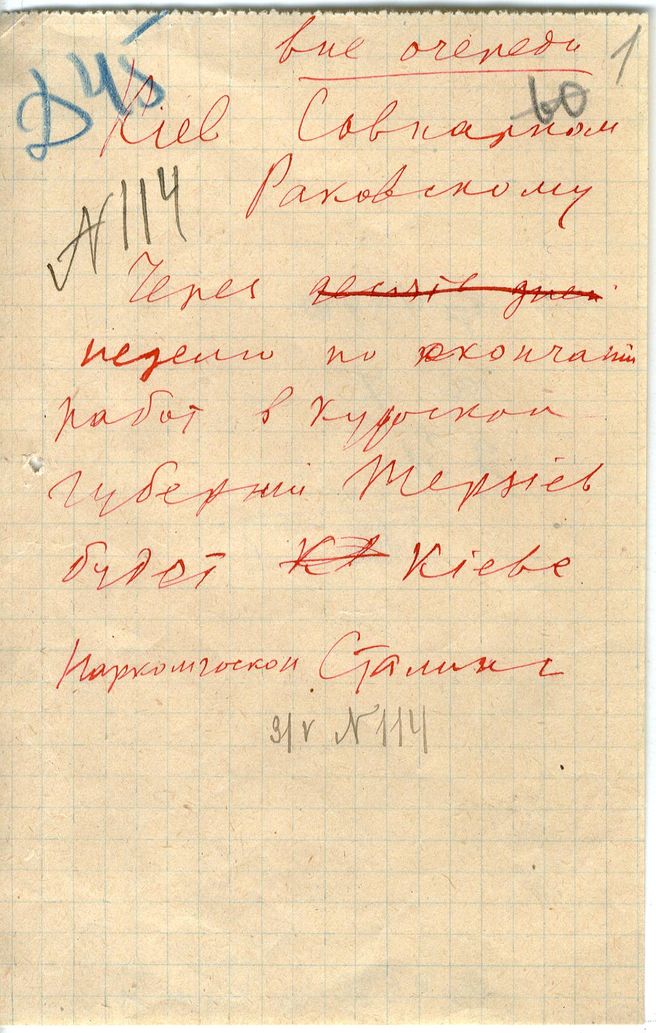 вне очереди
1
Д45
60
Кіев Совнарком
Раковскому
N114
Через десять дней
неделю по окончаніи
работ в Курской
губерніи Терзіев
будет Кіеве
Наркомгоскон Сталин
9/V N114